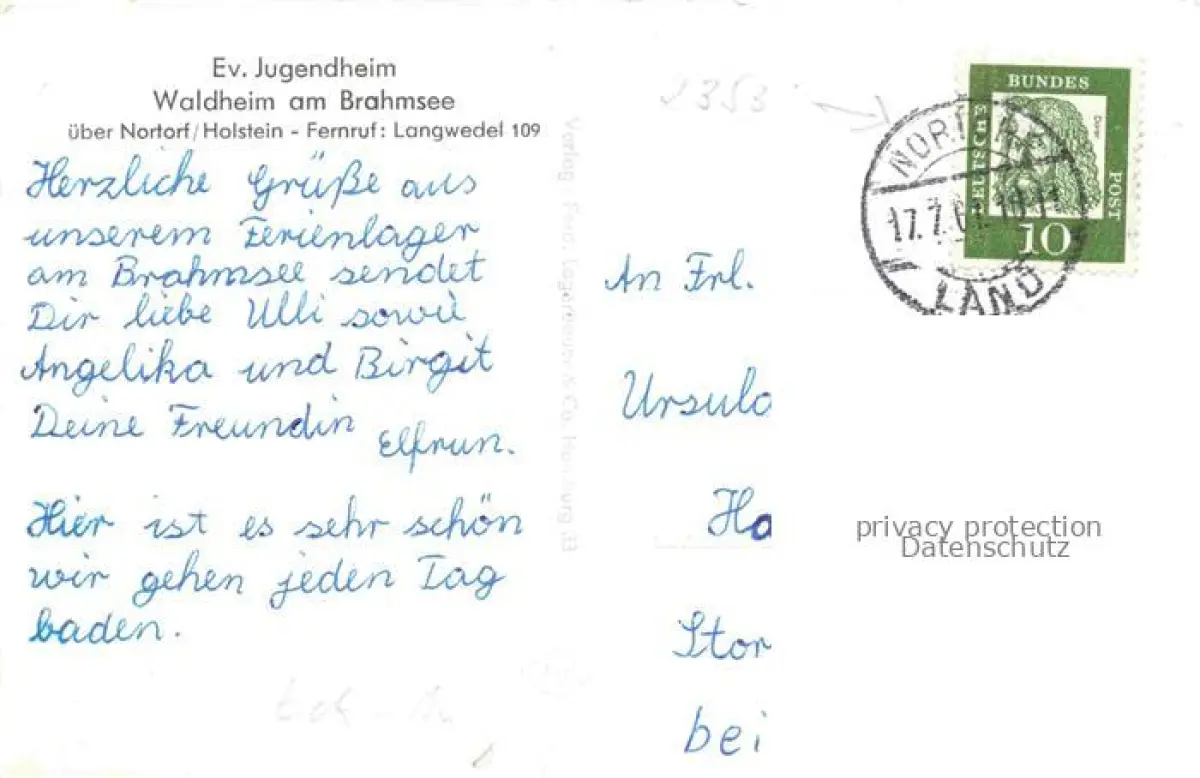 Ev. Jugendheim
Waldheim am Brahmsee
über Nortorf/Holstein - Fernruf: Langwedel 109
Herzliche Grüße aus
unserem Ferienlager
am Brahmsee sendet
Dir liebe Ulli sowie
Angelika und Birgit
Deine Freundin
Elfrun.
Hier ist es sehr schön
wir gehen jeden Tag
baden.
2353
BUNDES
DEUTSCHE
POST
10
LAND
An Frl.
Ursula
Ha
Stor
bei
privacy protection
Datenschutz